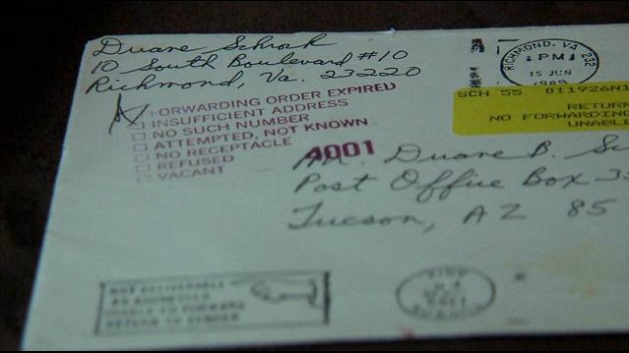 Duane Schrak
10 South Boulevard #10
Richmond, Va. 23220
RICHMOND, VA 232
PM
15 JUN
1989
SCH 55 011926N1
RETURN
NO FORWARDING
UNABL
FORWARDING ORDER EXPIRED
INSUFFICIENT ADDRESS
NO SUCH NUMBER
ATTEMPTED, NOT KNOWN
NO RECEPTACLE
REFUSED
VACANT
4001
Mr. Duane B. Sc
Post Office Box 3
Tucson, AZ 85
NOT DELIVERABLE
AS ADDRESSED
UNABLE TO FORWARD
RETURN TO SENDER